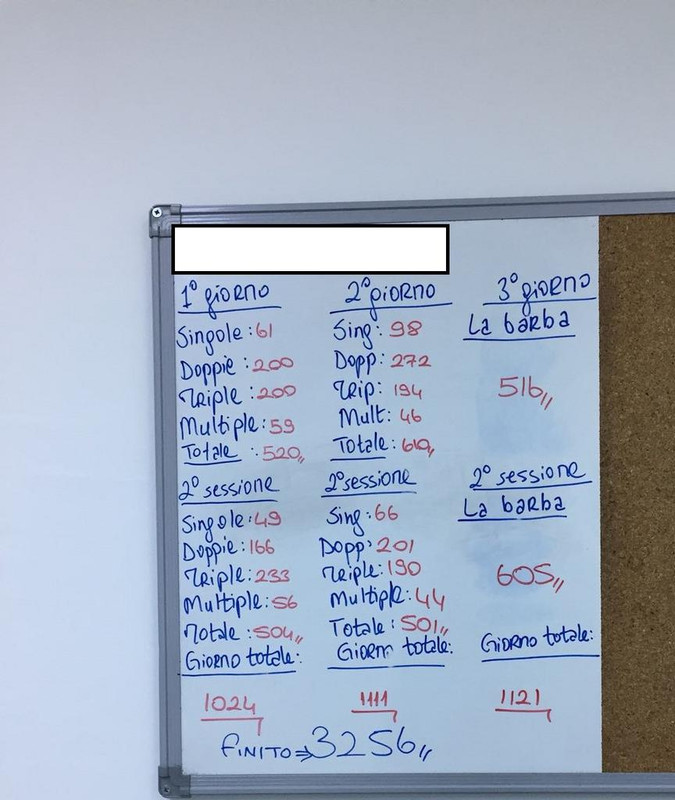 1° giorno
Singole: 61
Doppie: 200
Triple: 200
Multiple: 59
Totale: 520,,
2° sessione
Singole: 49
Doppie: 166
Triple: 233
Multiple: 56
Totale: 504,,
Giorno totale:
1024
2° giorno
Sing: 98
Dopp: 272
Trip: 194
Mult: 46
Totale: 610,,
2° sessione
Sing: 66
Dopp: 201
Triple: 190
Multiple: 44
Totale: 501,,
Giorno totale:
1111
3° giorno
La barba
516,,
2° sessione
La barba
605,,
Giorno totale:
1121
FINITO ⇒ 3256,,